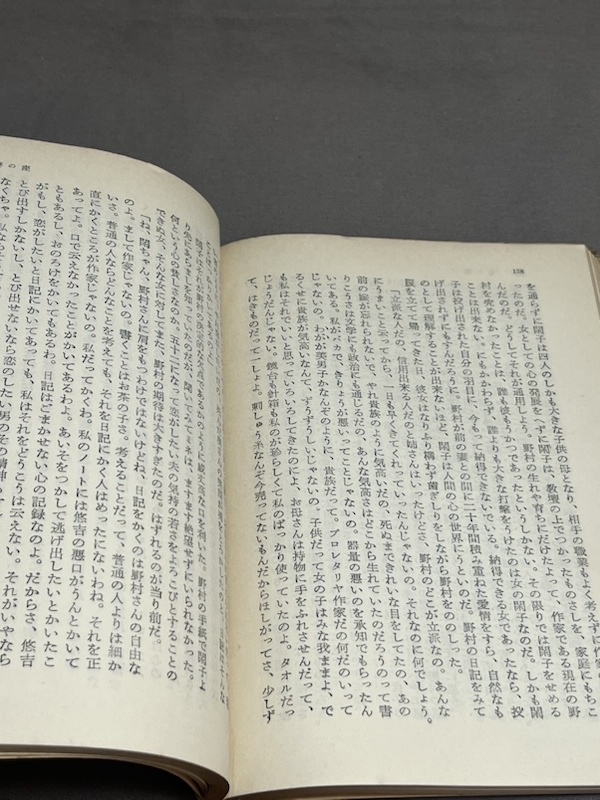 138
を通らずに閑子は四人のしかも大きな子供の母となり、相手の職業もよく考えずに
ったのだ。女としての心の発展をへずに閑子は、教壇の上でつかったものさしを、家庭にもちこ
んだのだ。どうしてそれが通用しよう。野村の生れや育ちにだけたよって、作家である現在の野
村を責めなかったことは、誰も彼もうかつであったというしかない。その限りでは閑子をせめる
ことは出来ない。にもかかわらず、誰よりも大きな打撃をうけたのは女の閑子なのだ。しかも閑
子は投げ出された自分の羽目に、今もって納得できないでいる。納得できる女であったなら、投
げ出されずにもすんだろうに。野村が前の妻との間に二十年間積み重ねた愛情をすら、自然なも
のとして理解することが出来ないほど、閑子は人間の心の世界にうといのだ。野村の日記をみて
腹を立てて帰ってきた日、彼女はなりふり構わず歯ぎしりをしながら野村をののしった。
「立派な人だの、信用出来る人だのと姉さんはいったけどさ、野村のどこが立派なの。あんな
にうまいこと云ってから、一日も早くきてくれっていったんじゃないの。それなのに何でしょう。
前の嬶が忘れられないで、やれ貴族のように気高いだの、死ぬまできれいな目をしてたの、あの
りこうさは文学にも政治にも通じるだの、あんな気高さはどこから生れていたのだろうのって書
いてある。私がバカで、きりょうが悪いってことじゃないの。器量の悪いのを承知でもらったん
じゃないの。わが美男子かなんぞのように、貴族だって。プロレタリヤ作家だの何だのいって
るくせに貴族が気高いなんて、ずうずうしいじゃないの。子供だって女の子はみな我ままよ、で
も私はそれでいいと思っていろいろしてきたのに、お母さんは持物に手をふれさせんだって、
じょうだんじゃない。鏡台も針箱も私のが珍らしくて私のばっかり使っていたのよ。タオルだっ
て、はきものだって一しょよ。刺しゅう糸なんぞ今売ってないもんだからほしがってさ、少しず
り急にあとましを知っていたのだが、聞いてみてミネは、ますます絶望せずにいられなかった。
何という心の貧しさなのか、五十二になって恋がしたい夫の気持の若さをよろこびとすることの
できぬ女、そんな女に対して、野村の期待は大きすぎたのだ。はずれるのが当り前だ。
「ね、閑ちゃん、野村さんに肩をもつわけではないけどね、日記をかくのは野村さんの自由な
のよ。まして作家じゃないの。書くことはお茶の子さ。考えることだって、普通の人よりは細か
いさ。普通の人ならどんなことを考えても、それを日記にかく人はめったにないわね。それを正
直にかくところが作家じゃないの。私だってかくわ。私のノートには悠吉の悪口がうんとかいて
あってよ。口で云えなかったことがかいてあるわよ。あいそをつかして逃げ出したいとかいたこ
ともあるし、おのろけをかいてもあるわ。日記はごまかせない心の記録なのよ。だからさ、悠吉
がもし、恋がしたいと日記にかいてあっても、私はそれをどうこうは云えない。それがいやなら
とび出すしかないし、とび出せないなら恋のしたい男のその精神